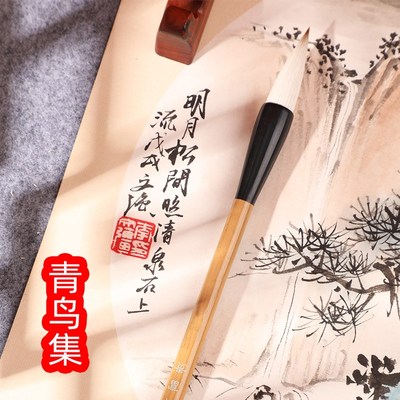 明月松間照清泉石上
流戊戌文
青鸟集